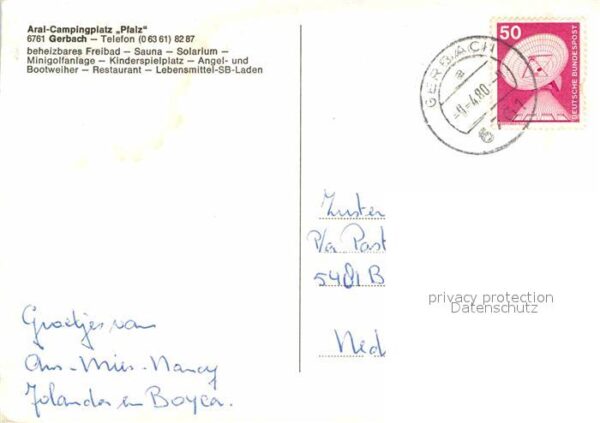 Aral-Campingplatz „Pfalz"
6761 Gerbach — Telefon (0 63 61) 82 87
beheizbares Freibad — Sauna — Solarium —
Minigolfanlage — Kinderspielplatz — Angel- und
Bootweiher — Restaurant — Lebensmittel-SB-Laden
50
DEUTSCHE BUNDESPOST
GERBACH
4.80
6761
Zuster
P/a Post
5401 B
Ned
privacy protection
Datenschutz
Groetjes van
Ans-Mies-Nancy
Jolanda en